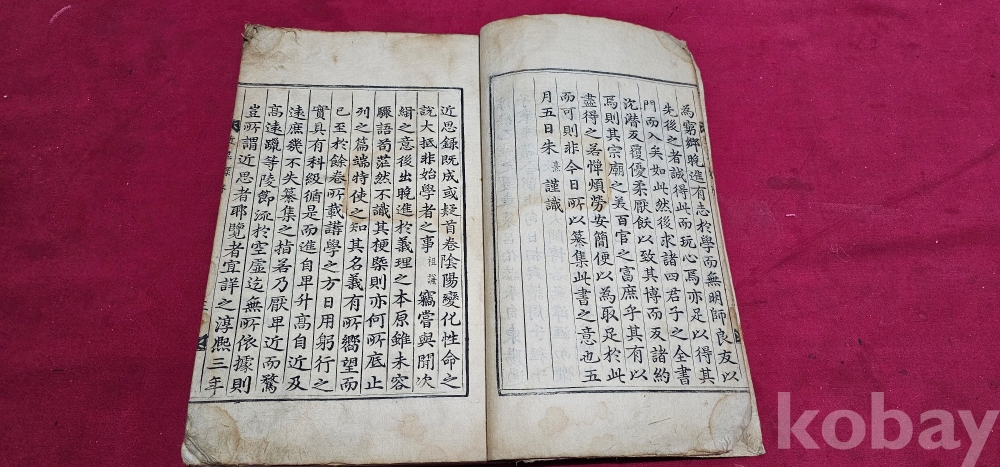 為窮鄉晚進有志於學而無明師良友以
先後之者誠得此而玩心焉亦足以得其
門而入矣如此然後求諸四君子之全書
沈潛反覆優柔厭飫以致其博而反諸約
焉則其宗廟之美百官之富庶乎其有以
盡得之若憚煩勞安簡便以為取足於此
而可則非今日所以纂集此書之意也五
月五日朱熹謹識
近思錄既成或疑首卷陰陽變化性命之
說大抵非始學者之事祖謙竊嘗與聞次
緝之意後出晚進於義理之本原雖未容
驟語苟茫然不識其梗槩則亦何所底止
列之篇端特使之知其名義有所嚮望而
已至於餘卷所載講學之方日用躬行之
實具有科級循是而進自卑升高自近及
遠庶幾不失纂集之指若乃厭卑近而騖
高遠躐等陵節流於空虛迄無所依據則
豈所謂近思者耶覽者宜詳之淳熙三年
kobay